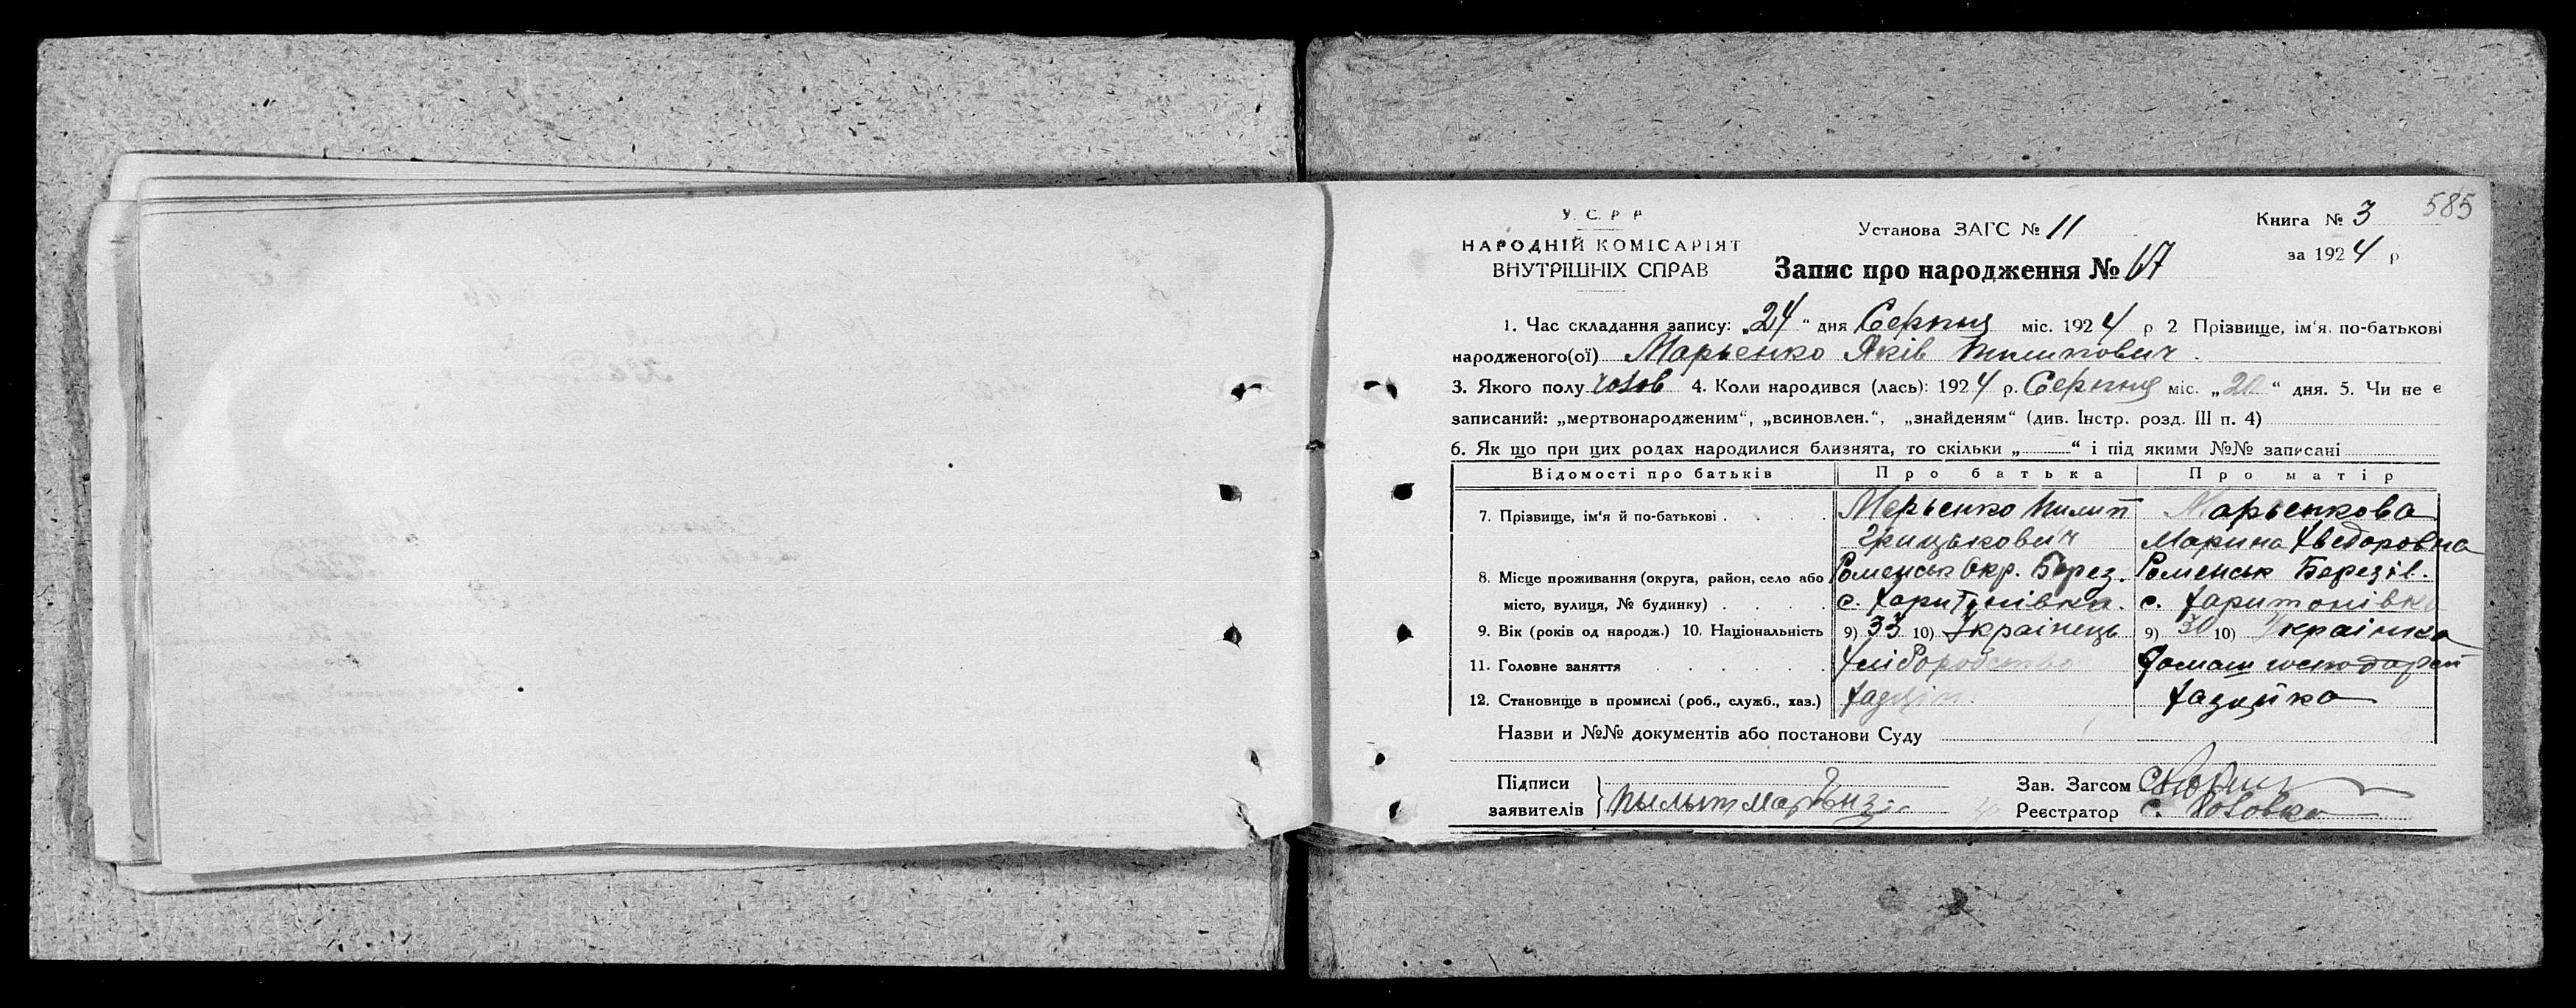 585
У. С. Р Р
НАРОДНІЙ КОМІСАРІЯТ
ВНУТРІШНІХ СПРАВ
Установа ЗАГС № 11
Книга № 3
за 1924 р
Запис про народження № 67
1. Час складання запису: „24“ дня Серпня міс. 1924 р 2 Прізвище, ім'я, по-батькові
народженого(ої) Марьенко Яків Пилипович.
3. Якого полу чолов 4. Коли народився (лась): 1924 р. Серпня міс. „20“ дня. 5. Чи не є
записаний: „мертвонародженим“, „всиновлен.“, „знайденям“ (див. Інстр. розд. III п. 4)
6. Як що при цих родах народилися близнята, то скільки „ “ і під якими №№ записані
Відомості про батьків Про батька Про матір
7. Прізвище, ім'я й по-батькові . . . . Марьенко Пилип Марьенкова
Грицькович Марина Хведоровна
8. Місце проживання (округа, район, село або Роменськ Окр. Берез. Роменськ Березів.
місто, вулиця, № будинку) . . . . с. Харитонівка. с. Харитонівка
9. Вік (років од народж.) 10. Національність 9) 33 10) Українець 9) 30 10) Українка
11. Головне заняття . . . . . Хліборобство Домаш господарст
12. Становище в промислі (роб., служб., хаз.) Хазяін. Хазяйка
Назви и №№ документів або постанови Суду
Підписи
заявителів
Зав. Загсом
Реєстратор